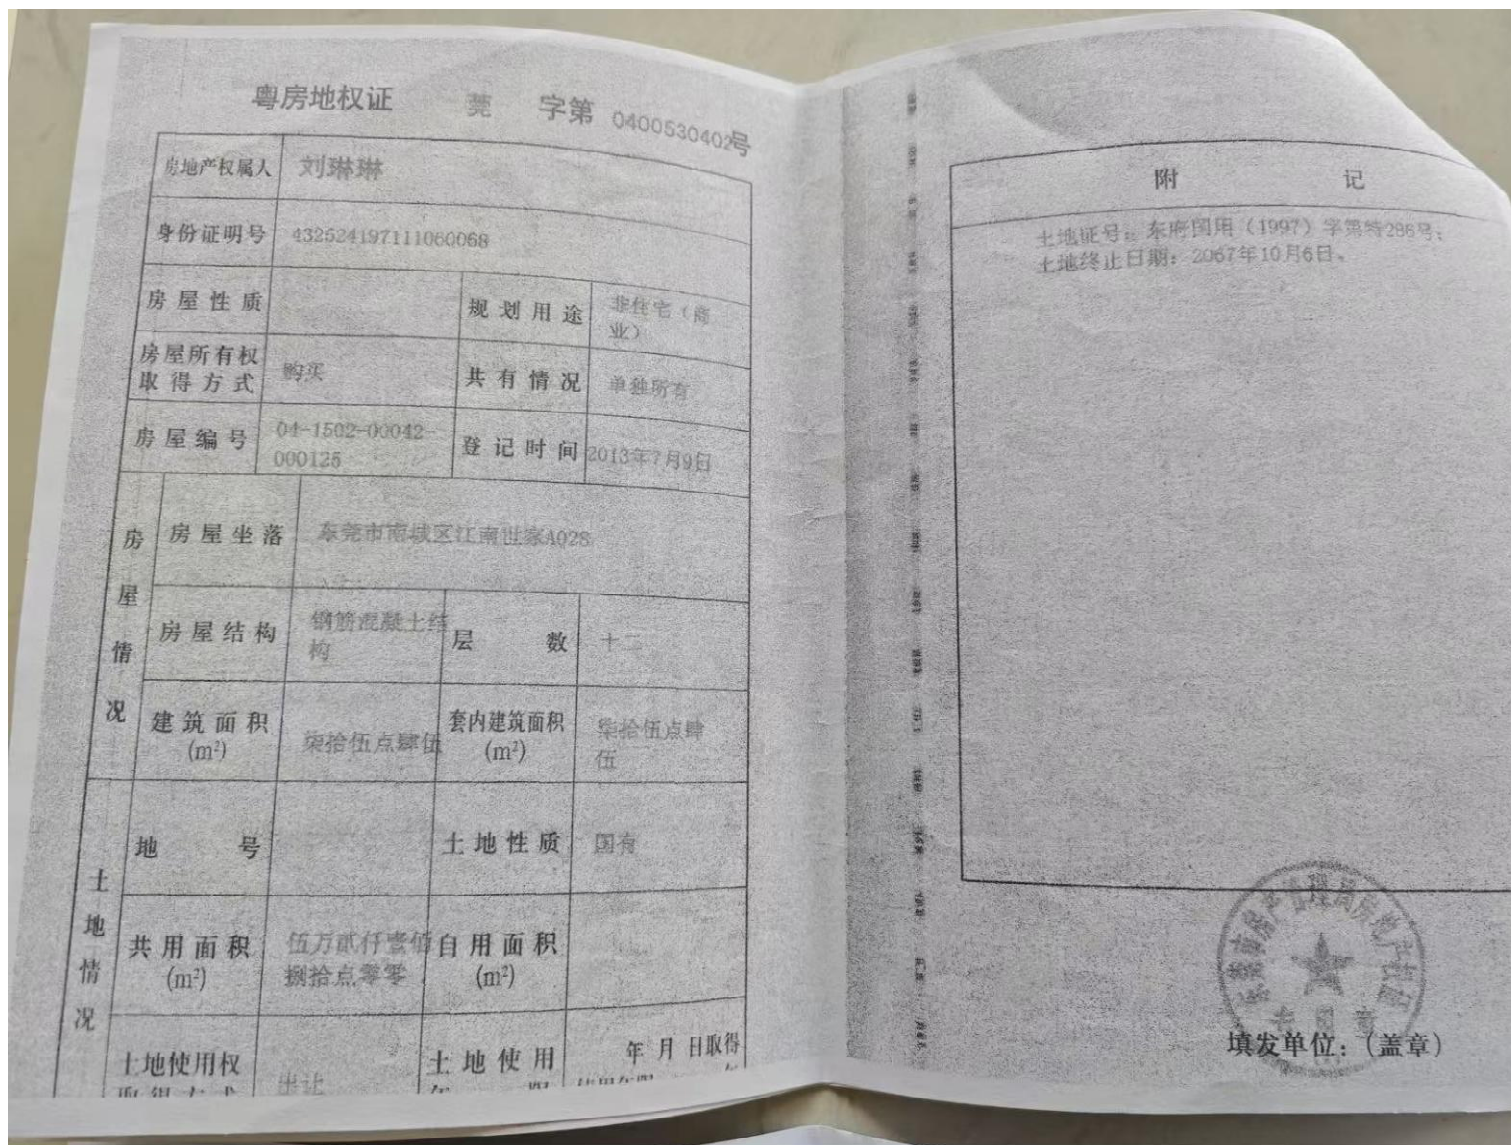 粤房地权证 莞 字第 0400530402号
房地产权属人 刘琳琳
身份证明号 432524197111060068
房屋性质 规划用途 非住宅（商
业）
房屋所有权
取得方式 购买 共有情况 单独所有
房屋编号 04-1502-00042-
000125 登记时间 2013年7月9日
房屋情况
房屋坐落 东莞市南城区江南世家A028
房屋结构 钢筋混凝土结
构 层数 十二
建筑面积
(m²) 柒拾伍点肆伍 套内建筑面积
(m²) 柒拾伍点肆
伍
土地情况
地号 土地性质 国有
共用面积
(m²) 伍万贰仟壹佰
捌拾点零零 自用面积
(m²)
土地使用权
取得方式 出让 土地使用
年限 年月日取得
附记
土地证号：东府国用（1997）字第特286号；
土地终止日期：2067年10月6日。
东莞市房产管理局房地产权证
专用章
填发单位：（盖章）